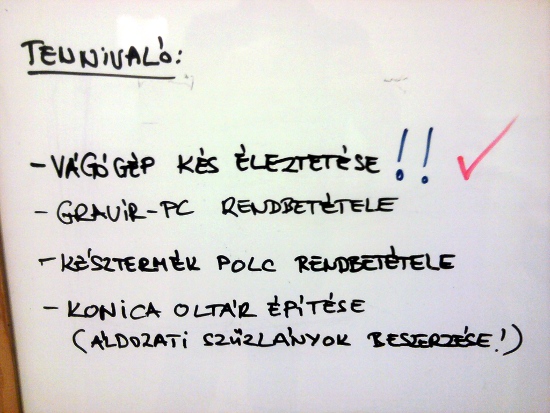 TENNIVALÓ:
- VÁGÓGÉP KÉS ÉLEZTETÉSE !! ✓
- GRAVÍR-PC RENDBETÉTELE
- KÉSZTERMÉK POLC RENDBETÉTELE
- KONICA OLTÁR ÉPÍTÉSE
(ÁLDOZATI SZŰZLÁNYOK BESZERZÉSE!)